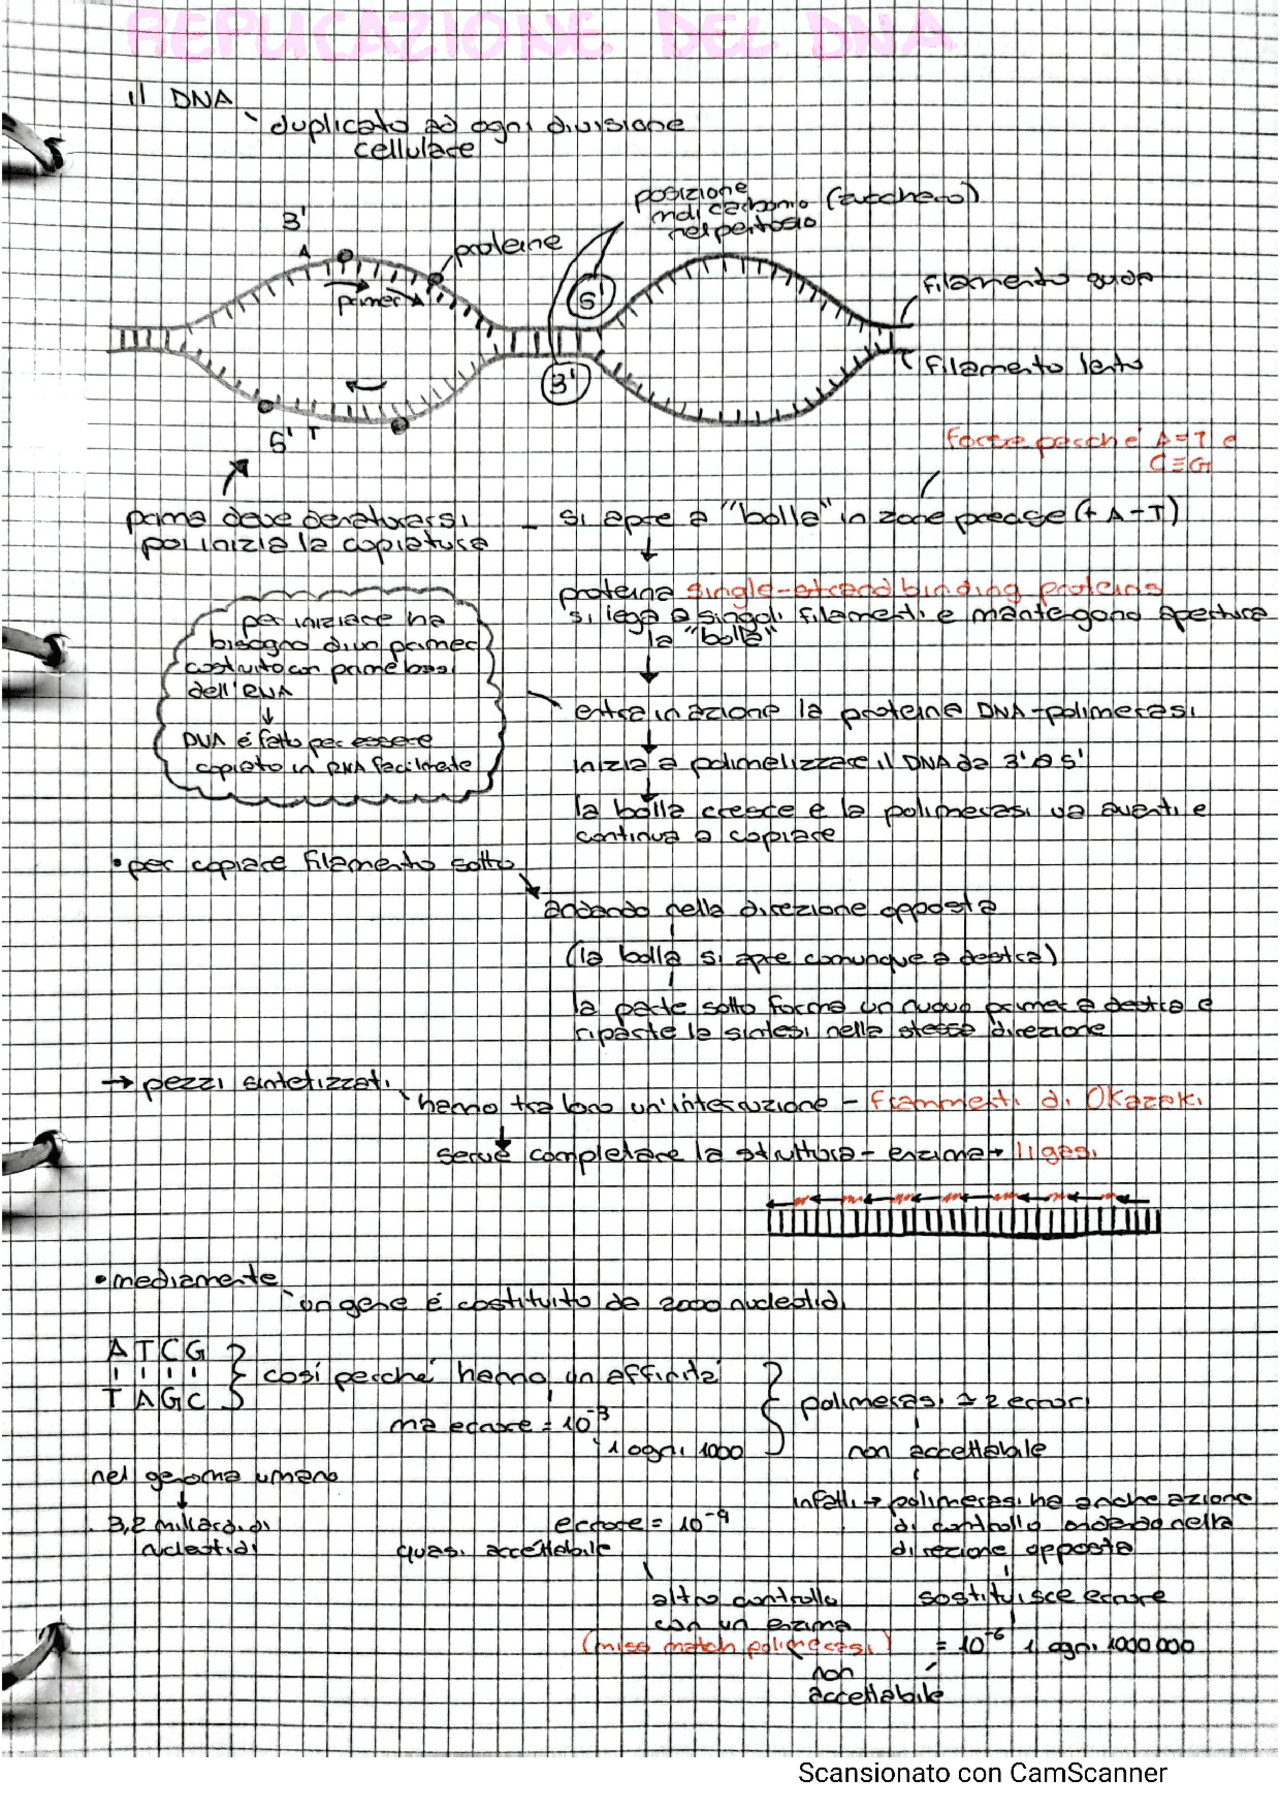 REPLICAZIONE DEL DNA
il DNA
duplicato ad ogni divisione
cellulare
posizione
di carbonio (zucchero)
nel pentosio
3'
A
proteine
primer
5'
filamento guida
3'
filamento lento
5' T
forze perché A=T e
C≡G
prima deve denaturarsi - si apre a "bolla" in zone precise (+ A-T)
poi inizia la copiatura
proteina single-strand binding proteins
si lega a singoli filamenti e mantengono apertura
la "bolla"
per iniziare ha
bisogno di un primer
costruito con prime basi
dell'RNA
↓
DNA é fatto per essere
copiato in RNA facilmente
entra in azione la proteina DNA-polimerasi
inizia a polimelizzare il DNA da 3' a 5'
la bolla cresce e la polimerasi va avanti e
continua a copiare
• per copiare filamento sotto
andando nella direzione opposta
(la bolla si apre comunque a destra)
la parte sotto forma un nuovo primer a destra e
riparte la sintesi nella stessa direzione
→ pezzi sintetizzati
hanno tra loro un'interruzione - frammenti di Okazaki
serve completare la struttura - enzima → ligasi
• mediamente
un gene é costituito da 2000 nucleotidi
A T C G
T A G C
cosí perché hanno un affinità
ma errore = 10⁻³
1 ogni 1000
polimerasi → 2 errori
non accettabile
nel genoma umano
↓
3,2 miliardi di
nucleotidi
infatti → polimerasi ha anche azione
di controllo andando nella
direzione opposta
errore = 10⁻⁹
quasi accettabile
altro controllo
con un enzima
(miss match polimerasi)
sostituisce errore
= 10⁻⁶ 1 ogni 1000 000
non
accettabile
Scansionato con CamScanner